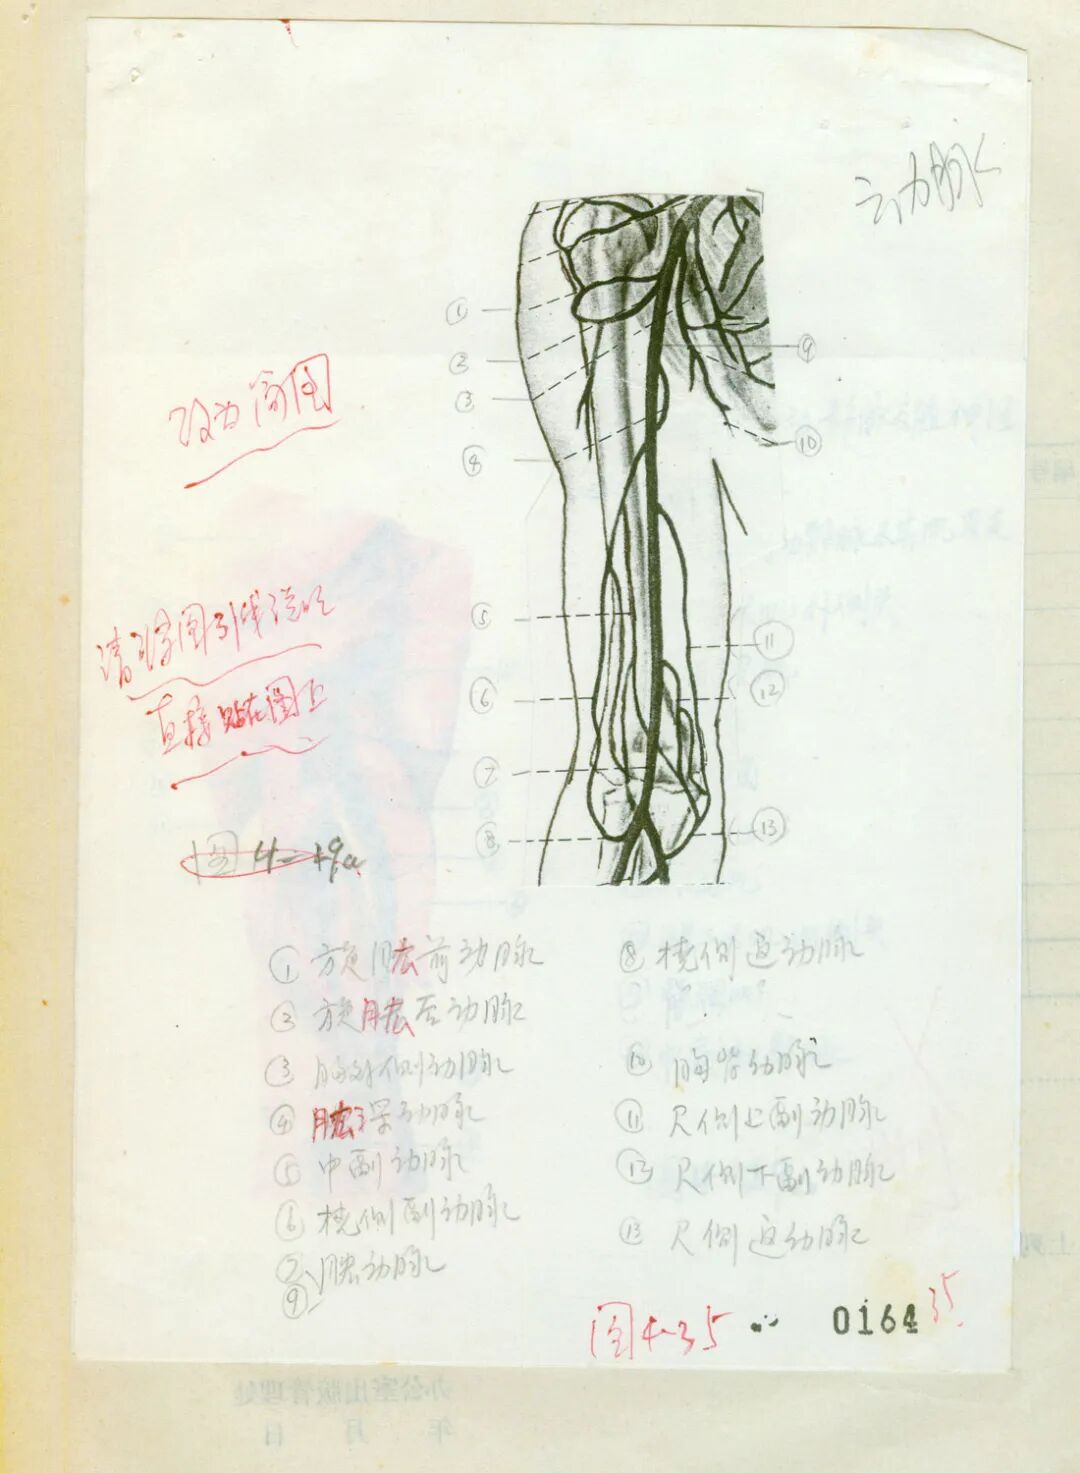 动脉
①
②
③
④
⑤
⑥
⑦
⑧
⑨
⑩
⑪
⑫
⑬
改为简图
请将图引线说明
直接贴在图上
图4-19a
① 旋肱前动脉
② 旋肱后动脉
③ 胸外侧动脉
④ 肱深动脉
⑤ 中副动脉
⑥ 桡侧副动脉
⑦
⑨ 肱动脉
⑧ 桡侧返动脉
⑩ 胸背动脉
⑪ 尺侧上副动脉
⑫ 尺侧下副动脉
⑬ 尺侧返动脉
图4-35
0164
35